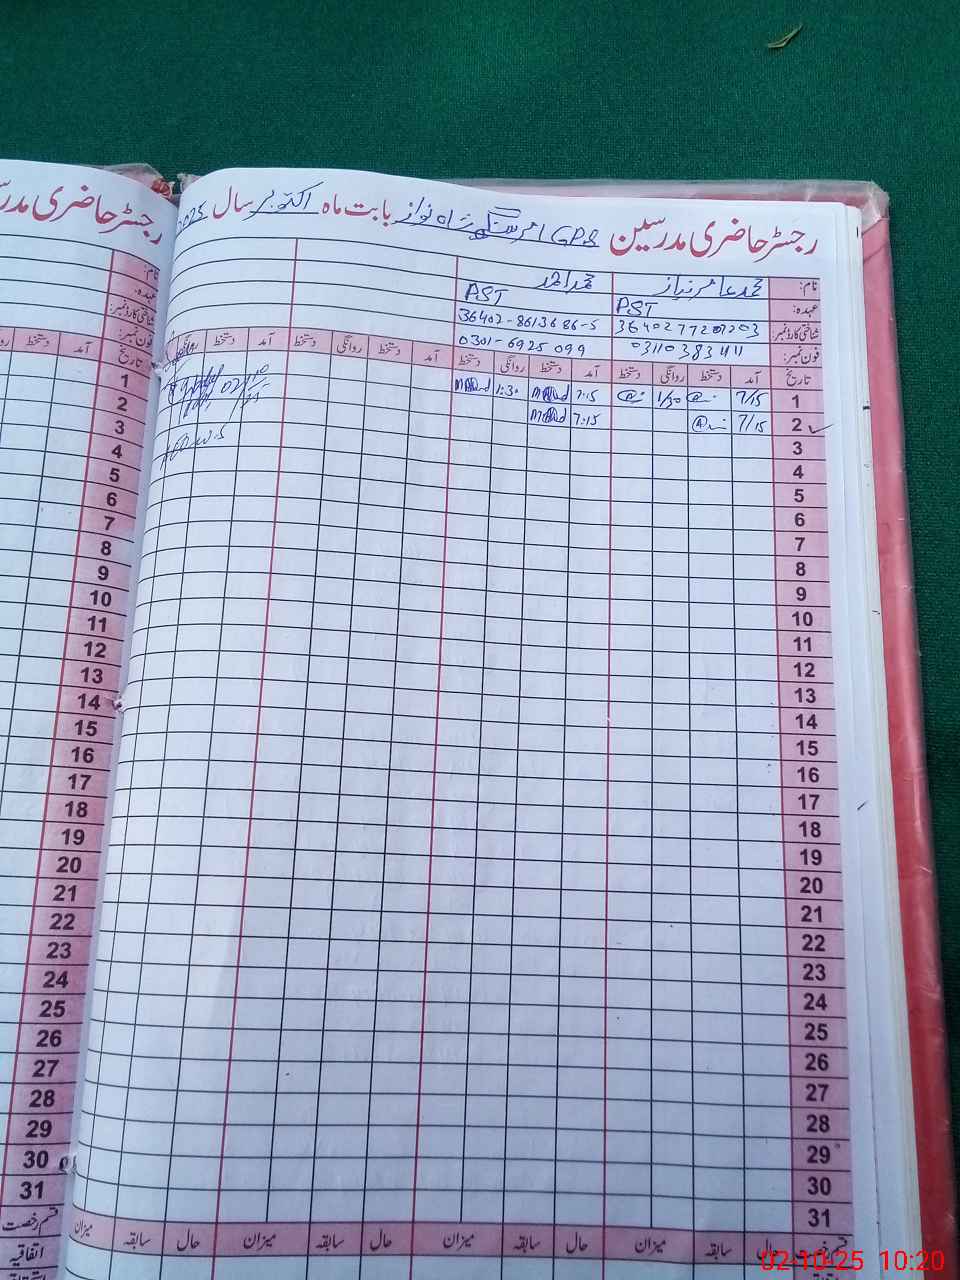 رجسٹر حاضری مدرسین GPS امر سنگھ شاہ نواز بابت ماہ اکتوبر سال 2025
رجسٹر حاضری مدر
نام: محمد عامر نیاز محمد احمد
عہدہ: PST PST
شناختی کارڈ نمبر: 3640277207203 36402-8613686-5
فون نمبر: 03110383411 0301-6925099
تاریخ آمد دستخط روانگی دستخط آمد دستخط روانگی دستخط آمد دستخط روانگی دستخط آمد دستخط
1 7/15 1/30 7:15 1:30
2 7/15 7:15
3
4
5
6
7
8
9
10
11
12
13
14
15
16
17
18
19
20
21
22
23
24
25
26
27
28
29
30
31
قسم رخصت حال سابقہ میزان حال سابقہ میزان حال سابقہ میزان حال سابقہ میزان
نام:
عہدہ:
شناختی کارڈ نمبر:
فون نمبر:
تاریخ آمد دستخط
1
2
3
4
5
6
7
8
9
10
11
12
13
14
15
16
17
18
19
20
21
22
23
24
25
26
27
28
29
30
31
قسم رخصت
اتفاقیہ
02-10-25 10:20